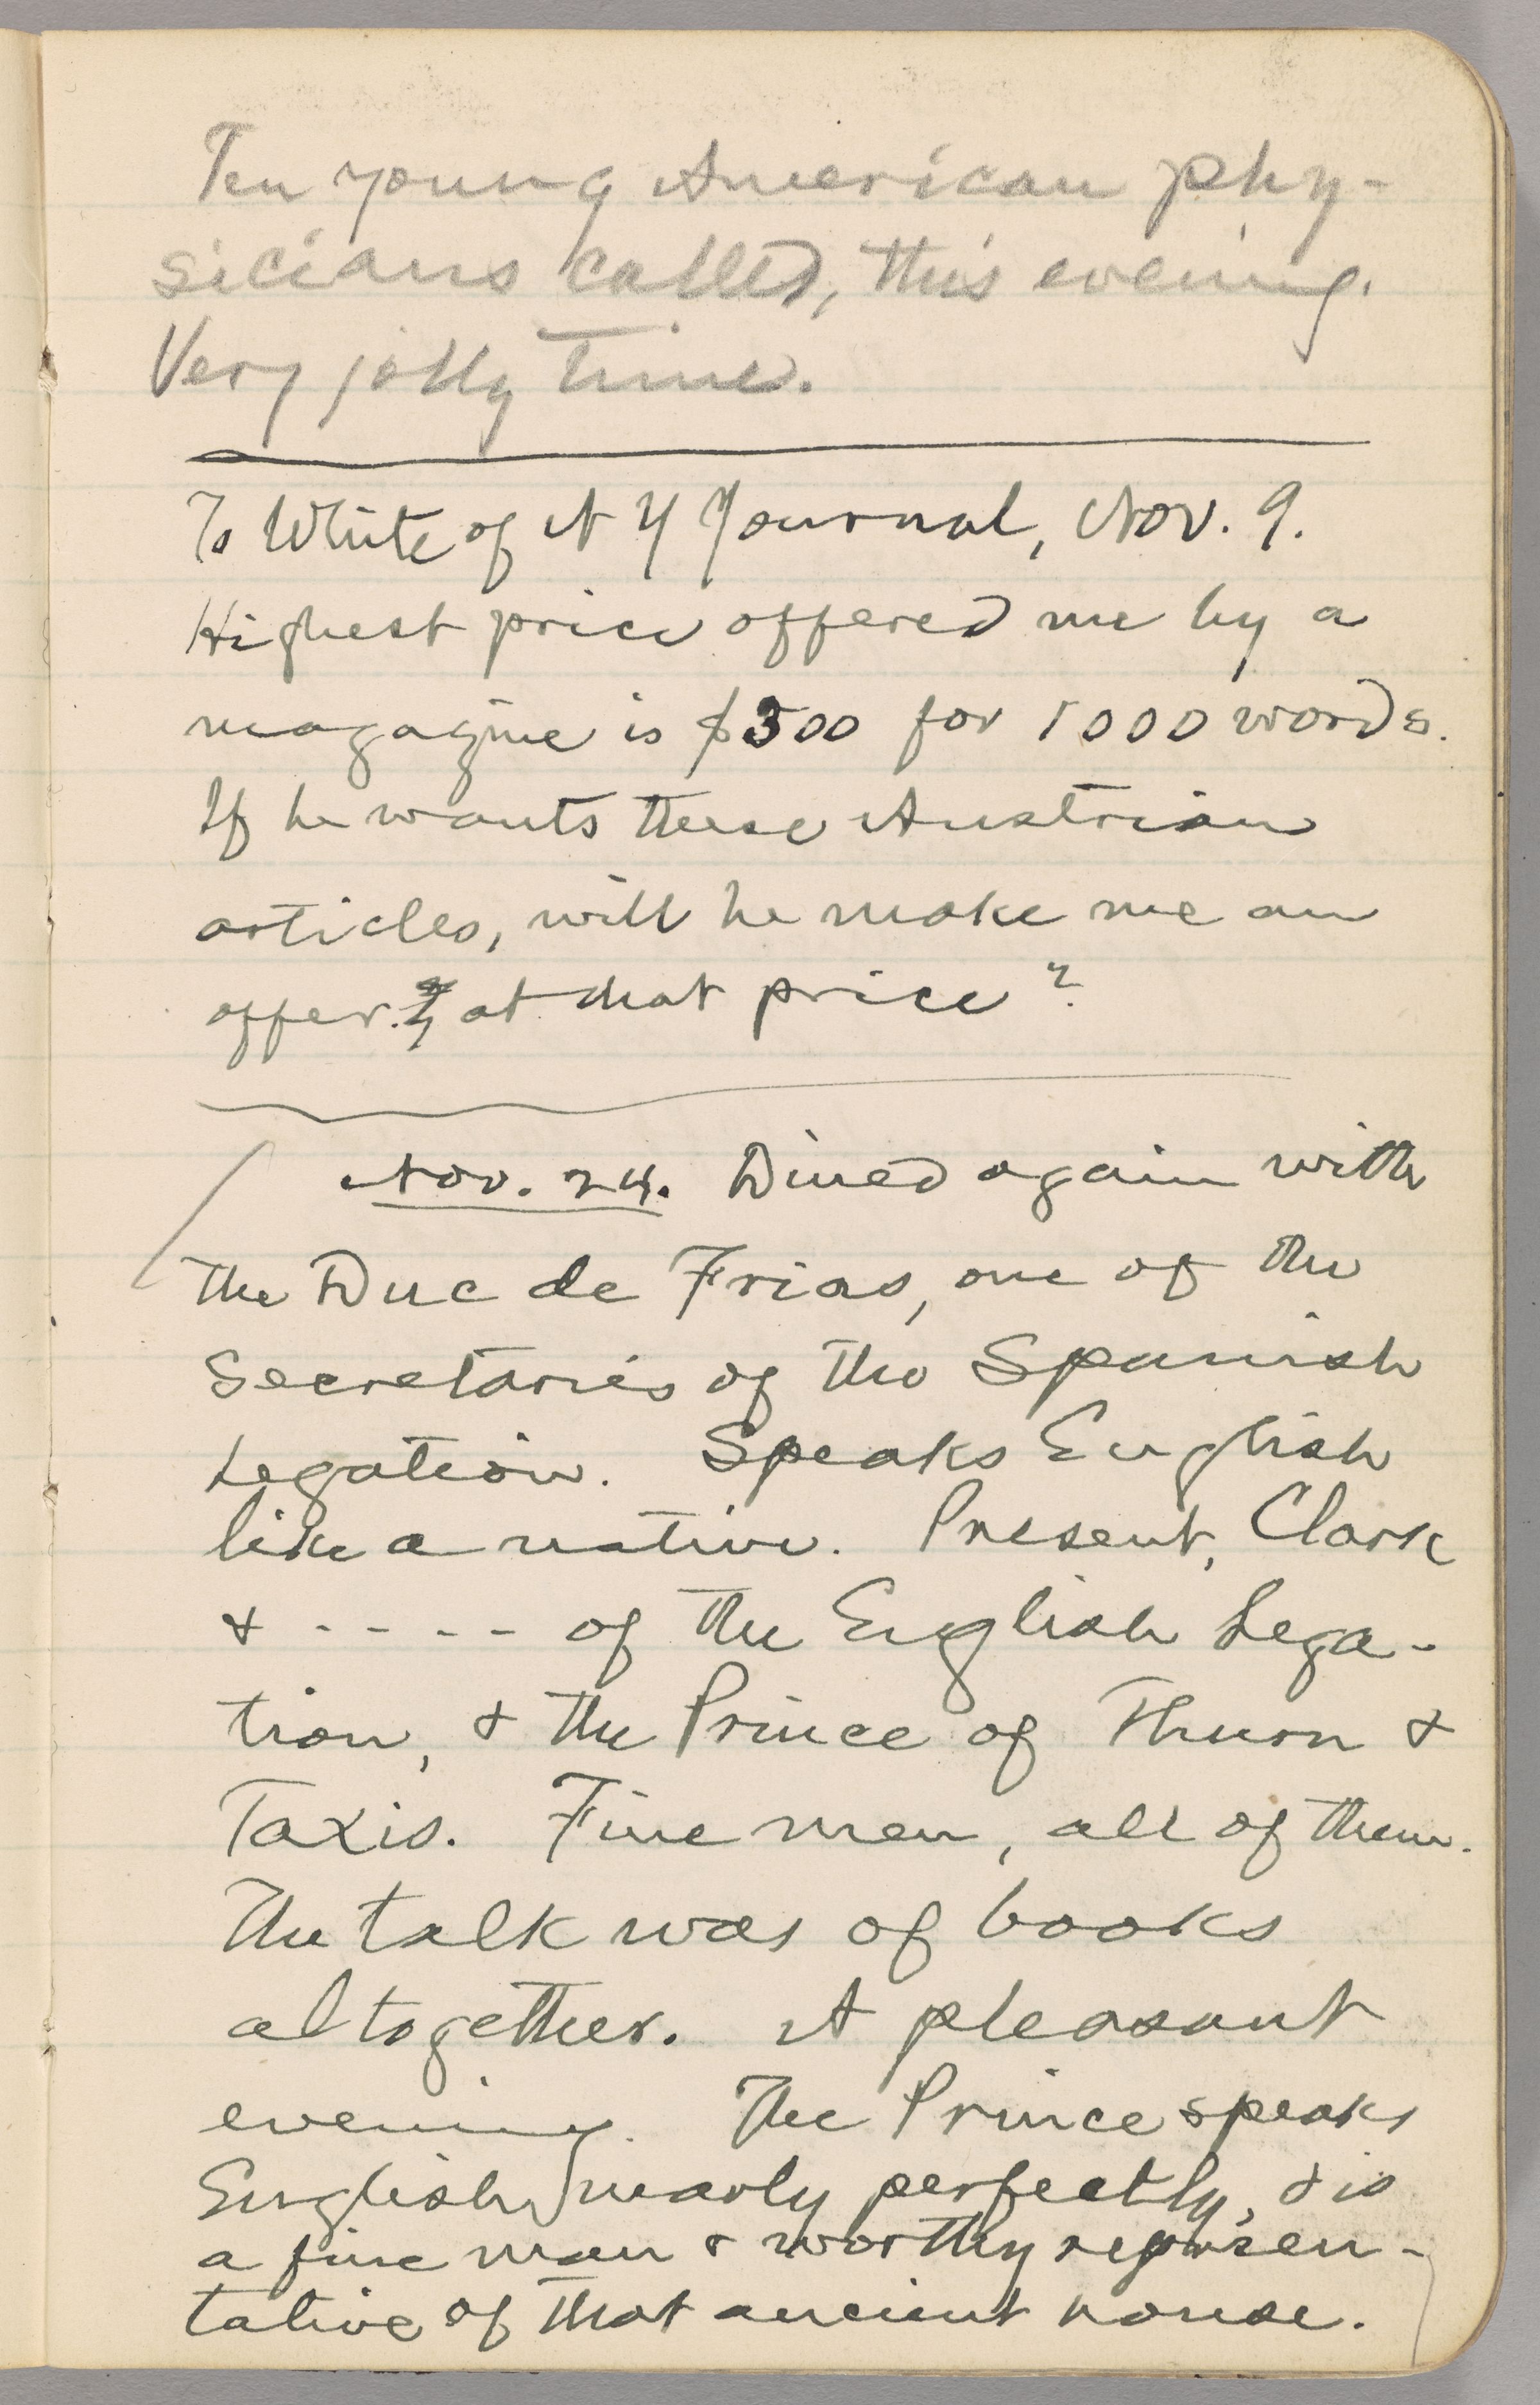 Ten young American phy-
sicians called, this evening.
Very jolly time.
To White of N Y Journal, Nov. 9.
Highest price offered me by a
magazine is $300 for 1000 words.
If he wants these Austrian
articles, will he make me an
offer at that price?
Nov. 24. Dined again with
the Duc de Frias, one of the
Secretaries of the Spanish
Legation. Speaks English
like a native. Present, Clark
& - - - - of the English Lega-
tion, & the Prince of Thurn &
Taxis. Fine men, all of them.
The talk was of books
altogether. A pleasant
evening. The Prince speaks
English nearly perfectly, & is
a fine man & worthy represen-
tative of that ancient house.